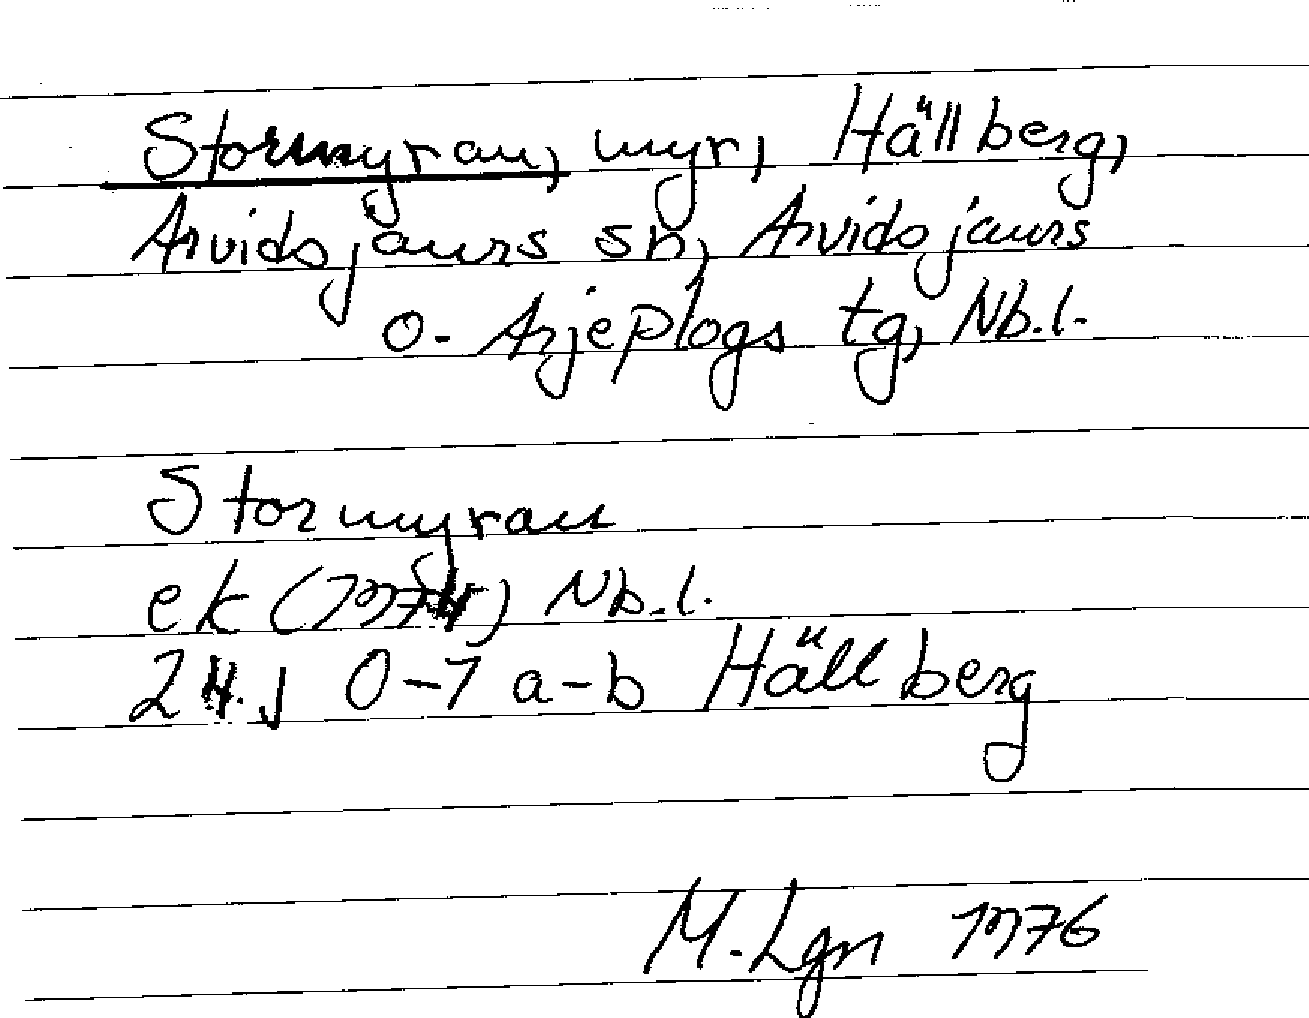 Stormyran, myr, Hällberg,
Arvidsjaurs sn, Arvidsjaurs
o. Arjeplogs tg, Nb.l.
Stormyran
ek (1974) Nb.l.
24 J 0-1 a-b Hällberg
M. Lgn 1976